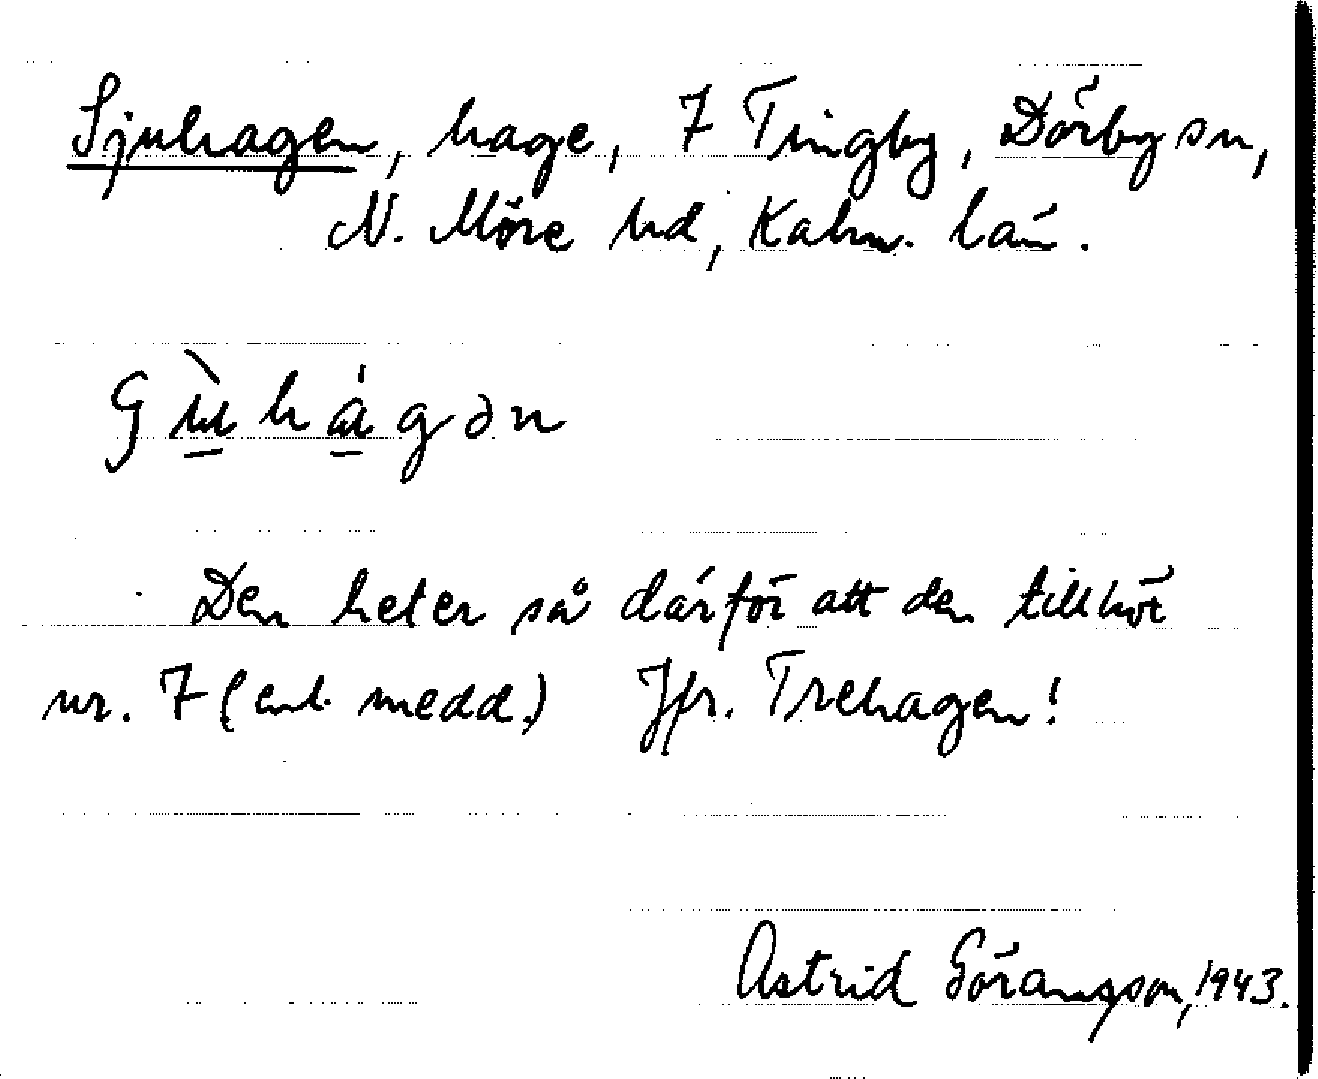 Sjuhagen, hage, 7 Tingby, Dörby sn,
N. Möre hd, Kalm. län.
Den heter så därför att den tillhör
nr. 7 (enl. medd.) Jfr. Trehagen!
Astrid Göransson, 1943.